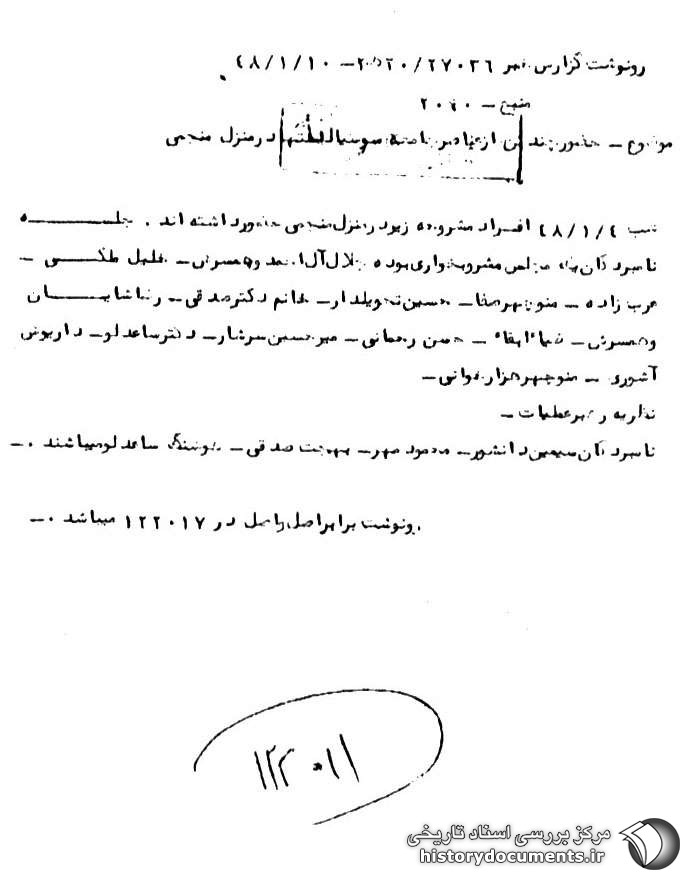 رونوشت گزارش نمر ۲۷۰۳۶/ ۲۰ه۲۰ – ۴۸/۱/۱۰
منبع – ۲۰۴۰
موضوع – حضور چند تن از عناصر جامعه سوسیالیستها در منزل منجمی
شب ۴۸/۱/۴ افراد مشروحه زیر در منزل منجمی حضور داشته اند . جلسه
نامبردگان یک مجلس مشروبخواری بوده جلال آل احمد و همسرش – خلیل ملکی –
عرب زاده – منوچهر صفا – حسین تحویلدار – خانم دکتر صدقی – رضا شایان
و همسرش – – حسن رحمانی – میر حسین سرشار – دکتر ساعد لو – داریوش
آشوری – منوچهر هزارخوانی –
نظریه رهبر عملیات –
نامبردگان سیمین دانشور – محمود مهر – بهجت صدقی – هوشنگ ساعد لو میباشند . –
رونوشت برابر اصل اصل در ۱۲۲۰۱۷ میباشد . –
۱۲۲۰۱۱
مرکز بررسی اسناد تاریخی
historydocuments.ir